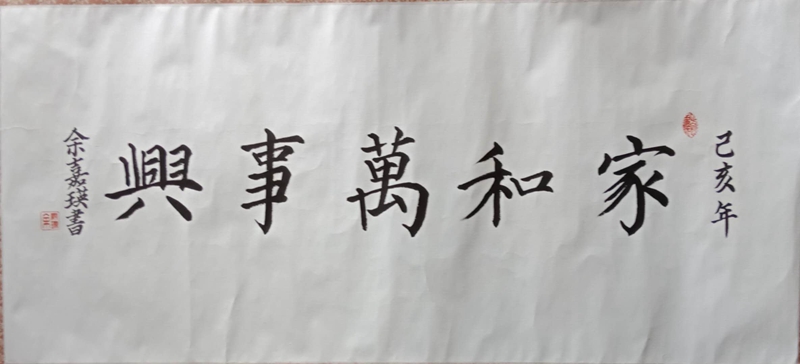 己亥年
家和萬事興
余嘉瑛書